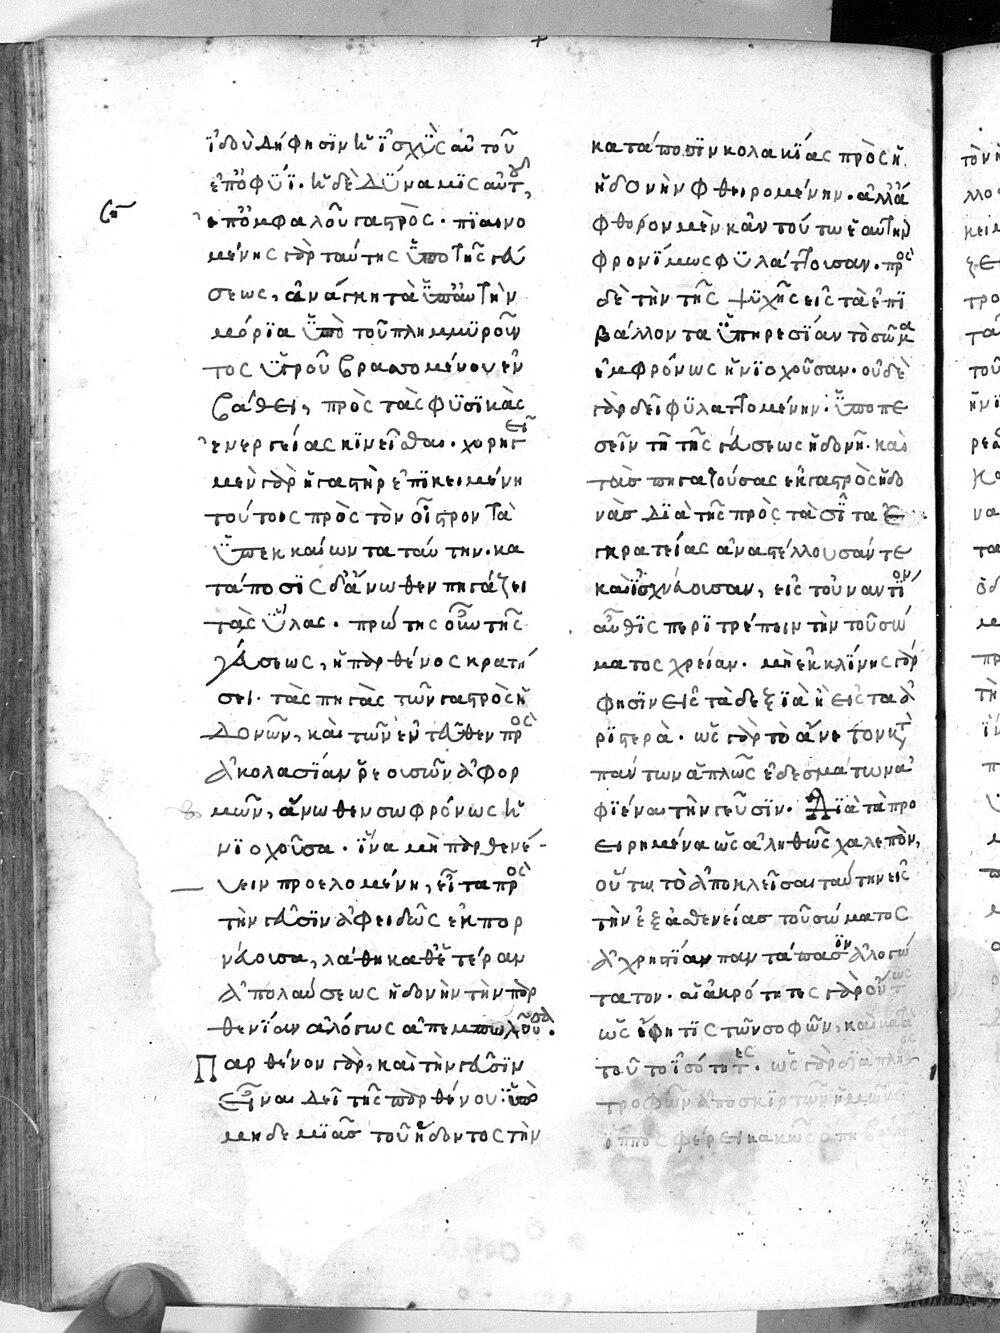 ἰδοὺ δή φησιν ἡ ἰσχὺς αὐτοῦ
ἐπ' ὀσφύϊ. ἡ δὲ δύναμις αὐτοῦ,
ἐπ' ὀμφαλοῦ γαστρός. πιαινο
μένης γὰρ ταύτης ὑπὸ τῆς γεύ
σεως, ἀνάγκη τὰ ὑπ' αὐτὴν
μόρια ὑπὸ τοῦ πλημμυροῦν
τος ὑγροῦ βρασσομένου ἐν
βάθει, πρὸς τὰς φυσικὰς
ἐνεργείας κινεῖσθαι. χορηγεῖ
μὲν γὰρ ἡ γαστὴρ ἐπικειμένη
τούτοις πρὸς τὸν οἶστρον τὰ
ὑπεκκαίοντα ταύτην. κα
τάποσις δ' ἄνωθεν πηγάζει
τὰς ὕλας. πρώτης οὖν τῆς
γεύσεως, ἡ παρθένος κρατή
σει. τὰς πηγὰς τῶν γαστρὸς ἡ
δονῶν, καὶ τῶν ἐντεῦθεν πρὸς
ἀκολασίαν ῥεουσῶν ἀφορ
μῶν, ἄνωθεν σωφρόνως ἡ
νιοχοῦσα. ἵνα μὴ παρθενε
ύειν προελομένη, εἶτα πρὸς
τὴν γεῦσιν ἀφειδῶς ἐκπορ
νεύουσα, λάθῃ καθ' ἑτέραν
ἀπολαύσεως ἡδονὴν τὴν παρ
θενίαν ἀλόγως ἀπεμπωλοῦσα.
Παρθένον γὰρ, καὶ τὴν γεῦσιν
εἶναι δεῖ τῆς παρθένου. ὑπὸ
μηδεμιᾶς τοῦ ἥδοντος τὴν
κατάποσιν κολακίας πρὸς ἡ
ἡδονὴν φθειρομένην. ἀλλὰ
φθορον μὲν κἀν τούτω ἑαυτὴν
φρονίμως φυλάττουσαν. πρὸς
δὲ τὴν τῆς ψυχῆς εἰς τὰ ἐπι
βάλλοντα ὑπηρεσίαν τὸ σῶμα
ἐμφρόνως ἡνιοχοῦσαν. οὐδὲ
γὰρ δεῖ φυλαττομένην. ὑποπε
σεῖν τῆ τῆς γεύσεως ἡδονῆ. καὶ
τὰς πηγαζούσας ἐκ γαστρὸς ἡδο
νὰς διὰ τῆς πρὸς τὰ σιτία ἐ
γκρατείας ἀναστέλλουσάν τε
καὶ ἰσχνεύουσαν, εἰς τοὐναντίον
αὖθις περιτρέπειν τὴν τοῦ σώ
ματος χρείαν. μὴ ἐκκλίνης γάρ
φησιν εἰς τὰ δεξιὰ ἢ εἰς τὰ ἀ
ριστερά. ὡς γὰρ τὸ ἄνετον κατὰ
πάντων ἁπλῶς ἐδεσμάτων ἀ
φιέναι τὴν γεῦσιν. Διὰ τὰ προ
ειρημένα ὡς ἀληθῶς χαλεπὸν,
οὕτω τὸ ἀποκλεῖσαι ταύτην εἰς
τὴν ἐξ ἀσθενείας τοῦ σώματος
ἀχρηστίαν παντάπασιν ἀλογώ
τατον. αἱ ἀκρότητες γὰρ οὕτως
ὡς ἔφη τὶς τῶν σοφῶν, κακίαι
τοῦτο ἰσότητες. ὡς γὰρ διὰ πλῆθος
τροφῶν ἀποσκιρτῶν ἡμῶν
ἵππος φέρει κακῶς